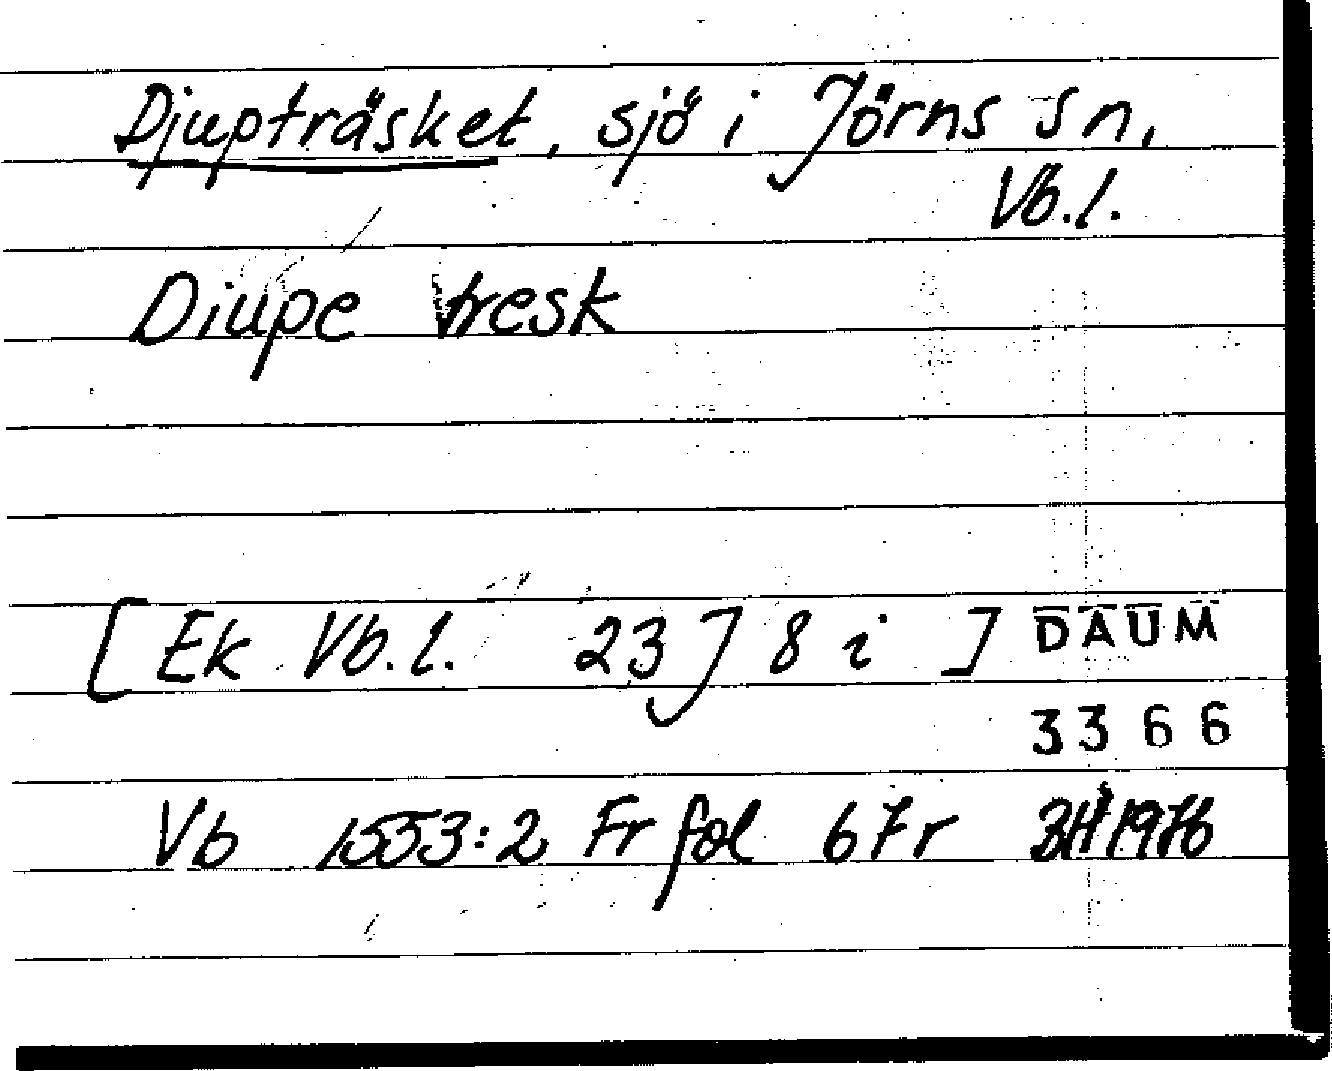 Djupträsket, sjö i Jörns sn,
Vb.l.
Diupe tresk
[Ek Vb.l. 23 J 8 i ] DAUM
3366
Vb 1553:2 Fr fol 67r